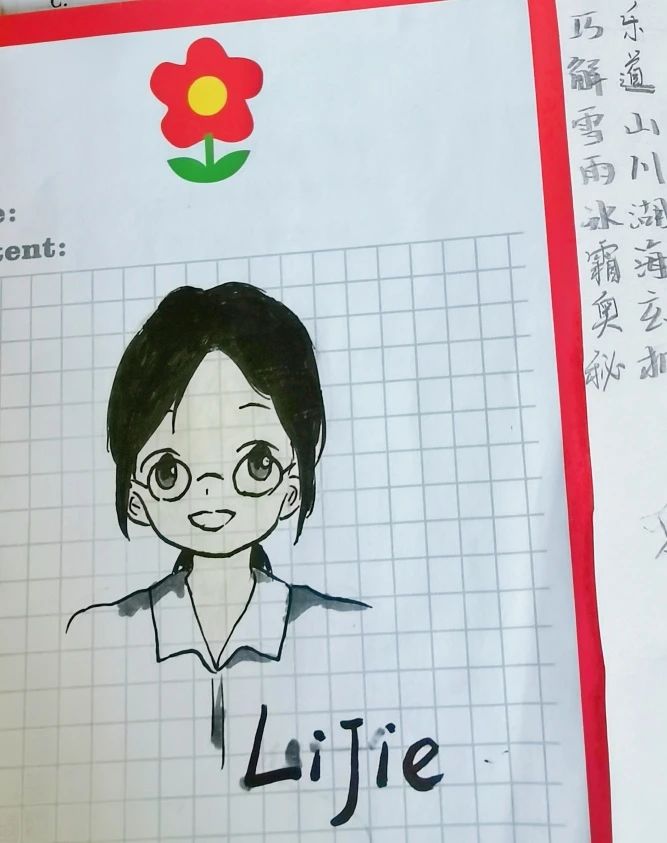 C.
e:
tent:
LiJie
巧 乐
解 道
雪 山
雨 川
冰 湖
霜 海
奥 玄
秘